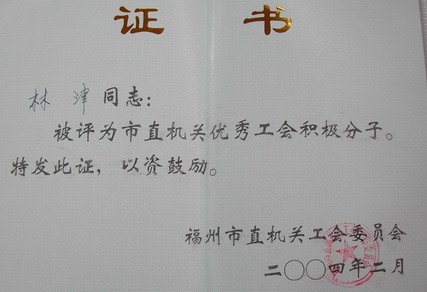 证书
林津同志：
被评为市直机关优秀工会积极分子。
特发此证，以资鼓励。
福州市直机关工会委员会
二〇〇四年二月